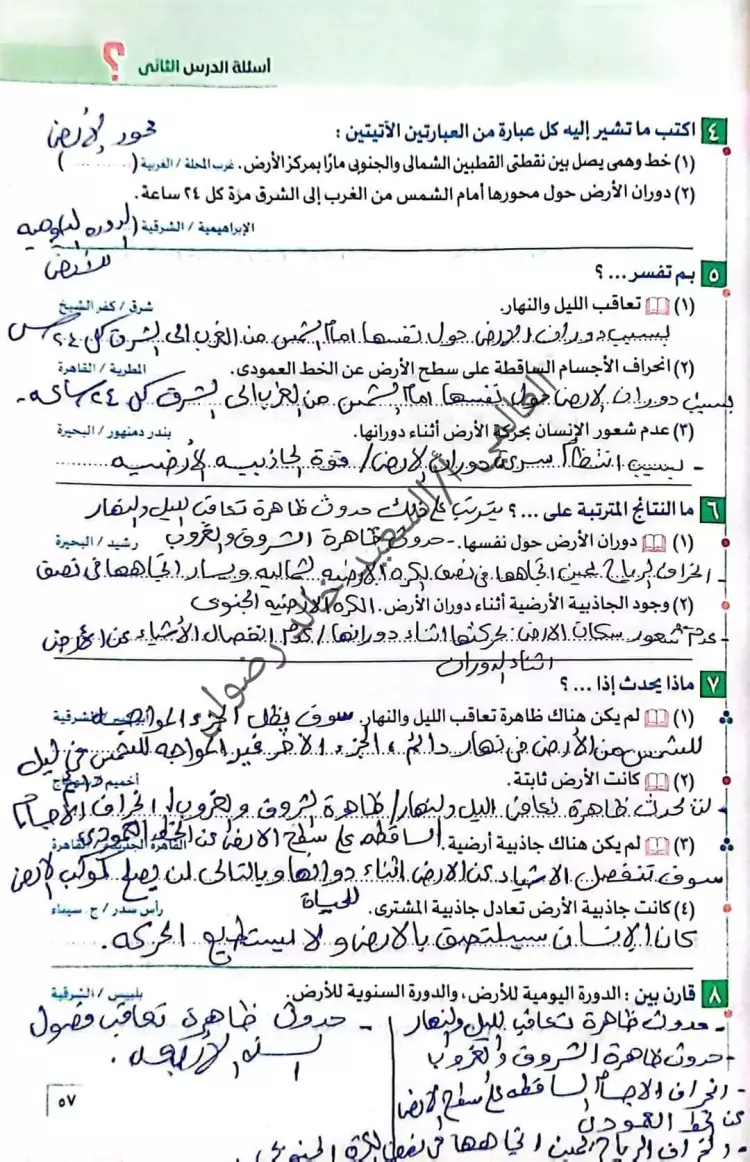 أسئلة الدرس الثانى ؟
٤ اكتب ما تشير إليه كل عبارة من العبارتين الآتيتين : محور الأرض
(١) خط وهمى يصل بين نقطتى القطبين الشمالى والجنوبى مارًا بمركز الأرض. غرب المحلة / الغربية (..........)
(٢) دوران الأرض حول محورها أمام الشمس من الغرب إلى الشرق مرة كل ٢٤ ساعة.
الإبراهيمية / الشرقية ( الدورة اليومية
للأرض
٥ بم تفسر ... ؟
(١) تعاقب الليل والنهار. شرق / كفر الشيخ
بسبب دوران الأرض حول نفسها أمام الشمس من الغرب الى الشرق كل ٢٤ س
(٢) انحراف الأجسام الساقطة على سطح الأرض عن الخط العمودى. المطرية / القاهرة
بسبب دوران الارض حول نفسها امام الشمس من الغرب الى الشرق كل ٢٤ ساعه.
(٣) عدم شعور الإنسان بحركة الأرض أثناء دورانها. بندر دمنهور / البحيرة
- بسبب انتظام سرعة دوران الارض / قوة الجاذبيه الأرضيه
٦ ما النتائج المترتبة على ... ؟ يترتب على ذلك حدوث ظاهرة تعاقب الليل والنهار
(١) دوران الأرض حول نفسها. - حدوث ظاهرة الشروق والغروب رشيد / البحيرة
- انحراف الرياح يمين اتجاهها فى نصف الكرة الارضيه الشماليه ويسار اتجاهها فى نصف
(٢) وجود الجاذبية الأرضية أثناء دوران الأرض. الكرة الارضيه الجنوبى
- عدم شعور سكان الارض بحركتها اثناء دورانها / عدم انفصال الأشياء عن الارض
اثناء الدوران
٧ ماذا يحدث إذا ... ؟
(١) لم يكن هناك ظاهرة تعاقب الليل والنهار. سوف يظل الجزء المواجه الشرقية
للشمس من الأرض فى نهار دائم ، الجزء الآخر غير المواجه للشمس فى ليل
(٢) كانت الأرض ثابتة. دائم أخميم / سوهاج
- لن تحدث ظاهرة تعاقب الليل والنهار / ظاهرة الشروق والغروب / انحراف الأجسام
(٣) لم يكن هناك جاذبية أرضية. الساقطه على سطح الارض عن الخط العمودى القاهرة
سوف تنفصل الاشياء عن الارض اثناء دورانها وبالتالى لن يصلح كوكب الأرض
للحياة
(٤) كانت جاذبية الأرض تعادل جاذبية المشترى. رأس سدر / ج. سيناء
كان الإنسان سيلتصق بالارض ولا يستطيع الحركه.
٨ قارن بين : الدورة اليومية للأرض، والدورة السنوية للأرض. بلبيس / الشرقية
- حدوث ظاهرة تعاقب الليل والنهار - حدوث ظاهرة تعاقب فصول
- حدوث ظاهرة الشروق والغروب السنه الأربعه.
- انحراف الاجسام الساقطه على سطح الارض
عن الخط العمودى
- انحراف الرياح يمين اتجاهها فى نصف الكرة الجنوبى
٥٧